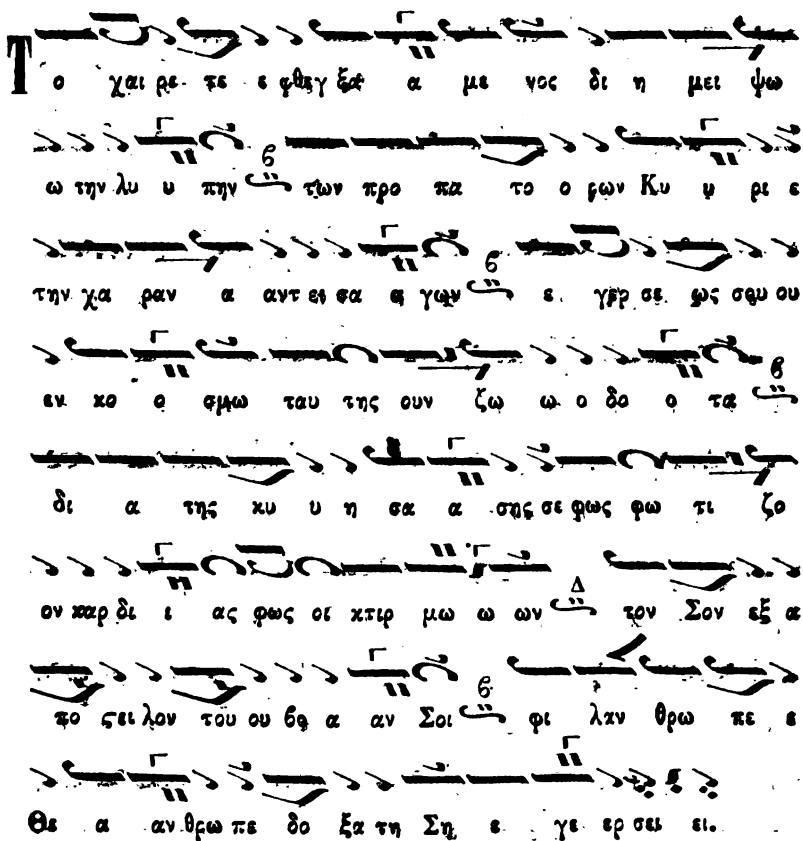 Το χαι ρε τε ε φθεγ ξα α με νος δι η μει ψω
ω την λυ υ πην β των προ πα το ο ρων Κυ υ ρι ε
την χα ραν α αντ ει σα α γων β ε γερ σε ως σου ου
εν κο ο σμω ταυ της ουν ζω ω ο δο ο τα β
δι α της κυ υ η σα α σης σε φως φω τι ζο
ον καρ δι ι ας φως οι κτιρ μω ω ων Δ τον Σον εξ α
πο ςει λον του ου βο α αν Σοι β φι λαν θρω πε ε
Θε α αν θρω πε δο ξα τη Ση ε γε ερ σει ει.